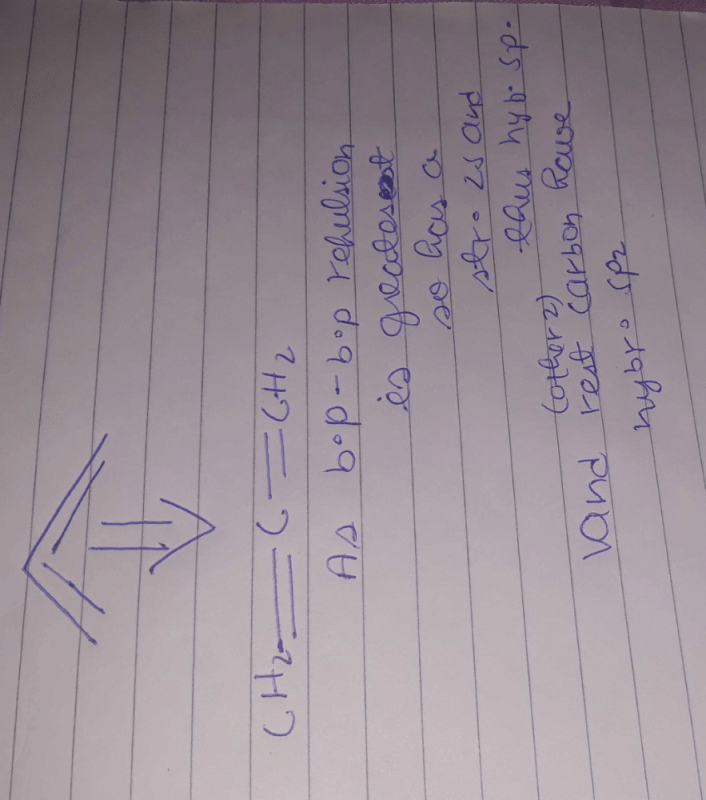 CH2=C=CH2
As b.p-b.p repulsion
is greatest
so has a
str. 2s and
thus hyb. sp.
(other 2)
Vand rest carbon have
hybr. sp2